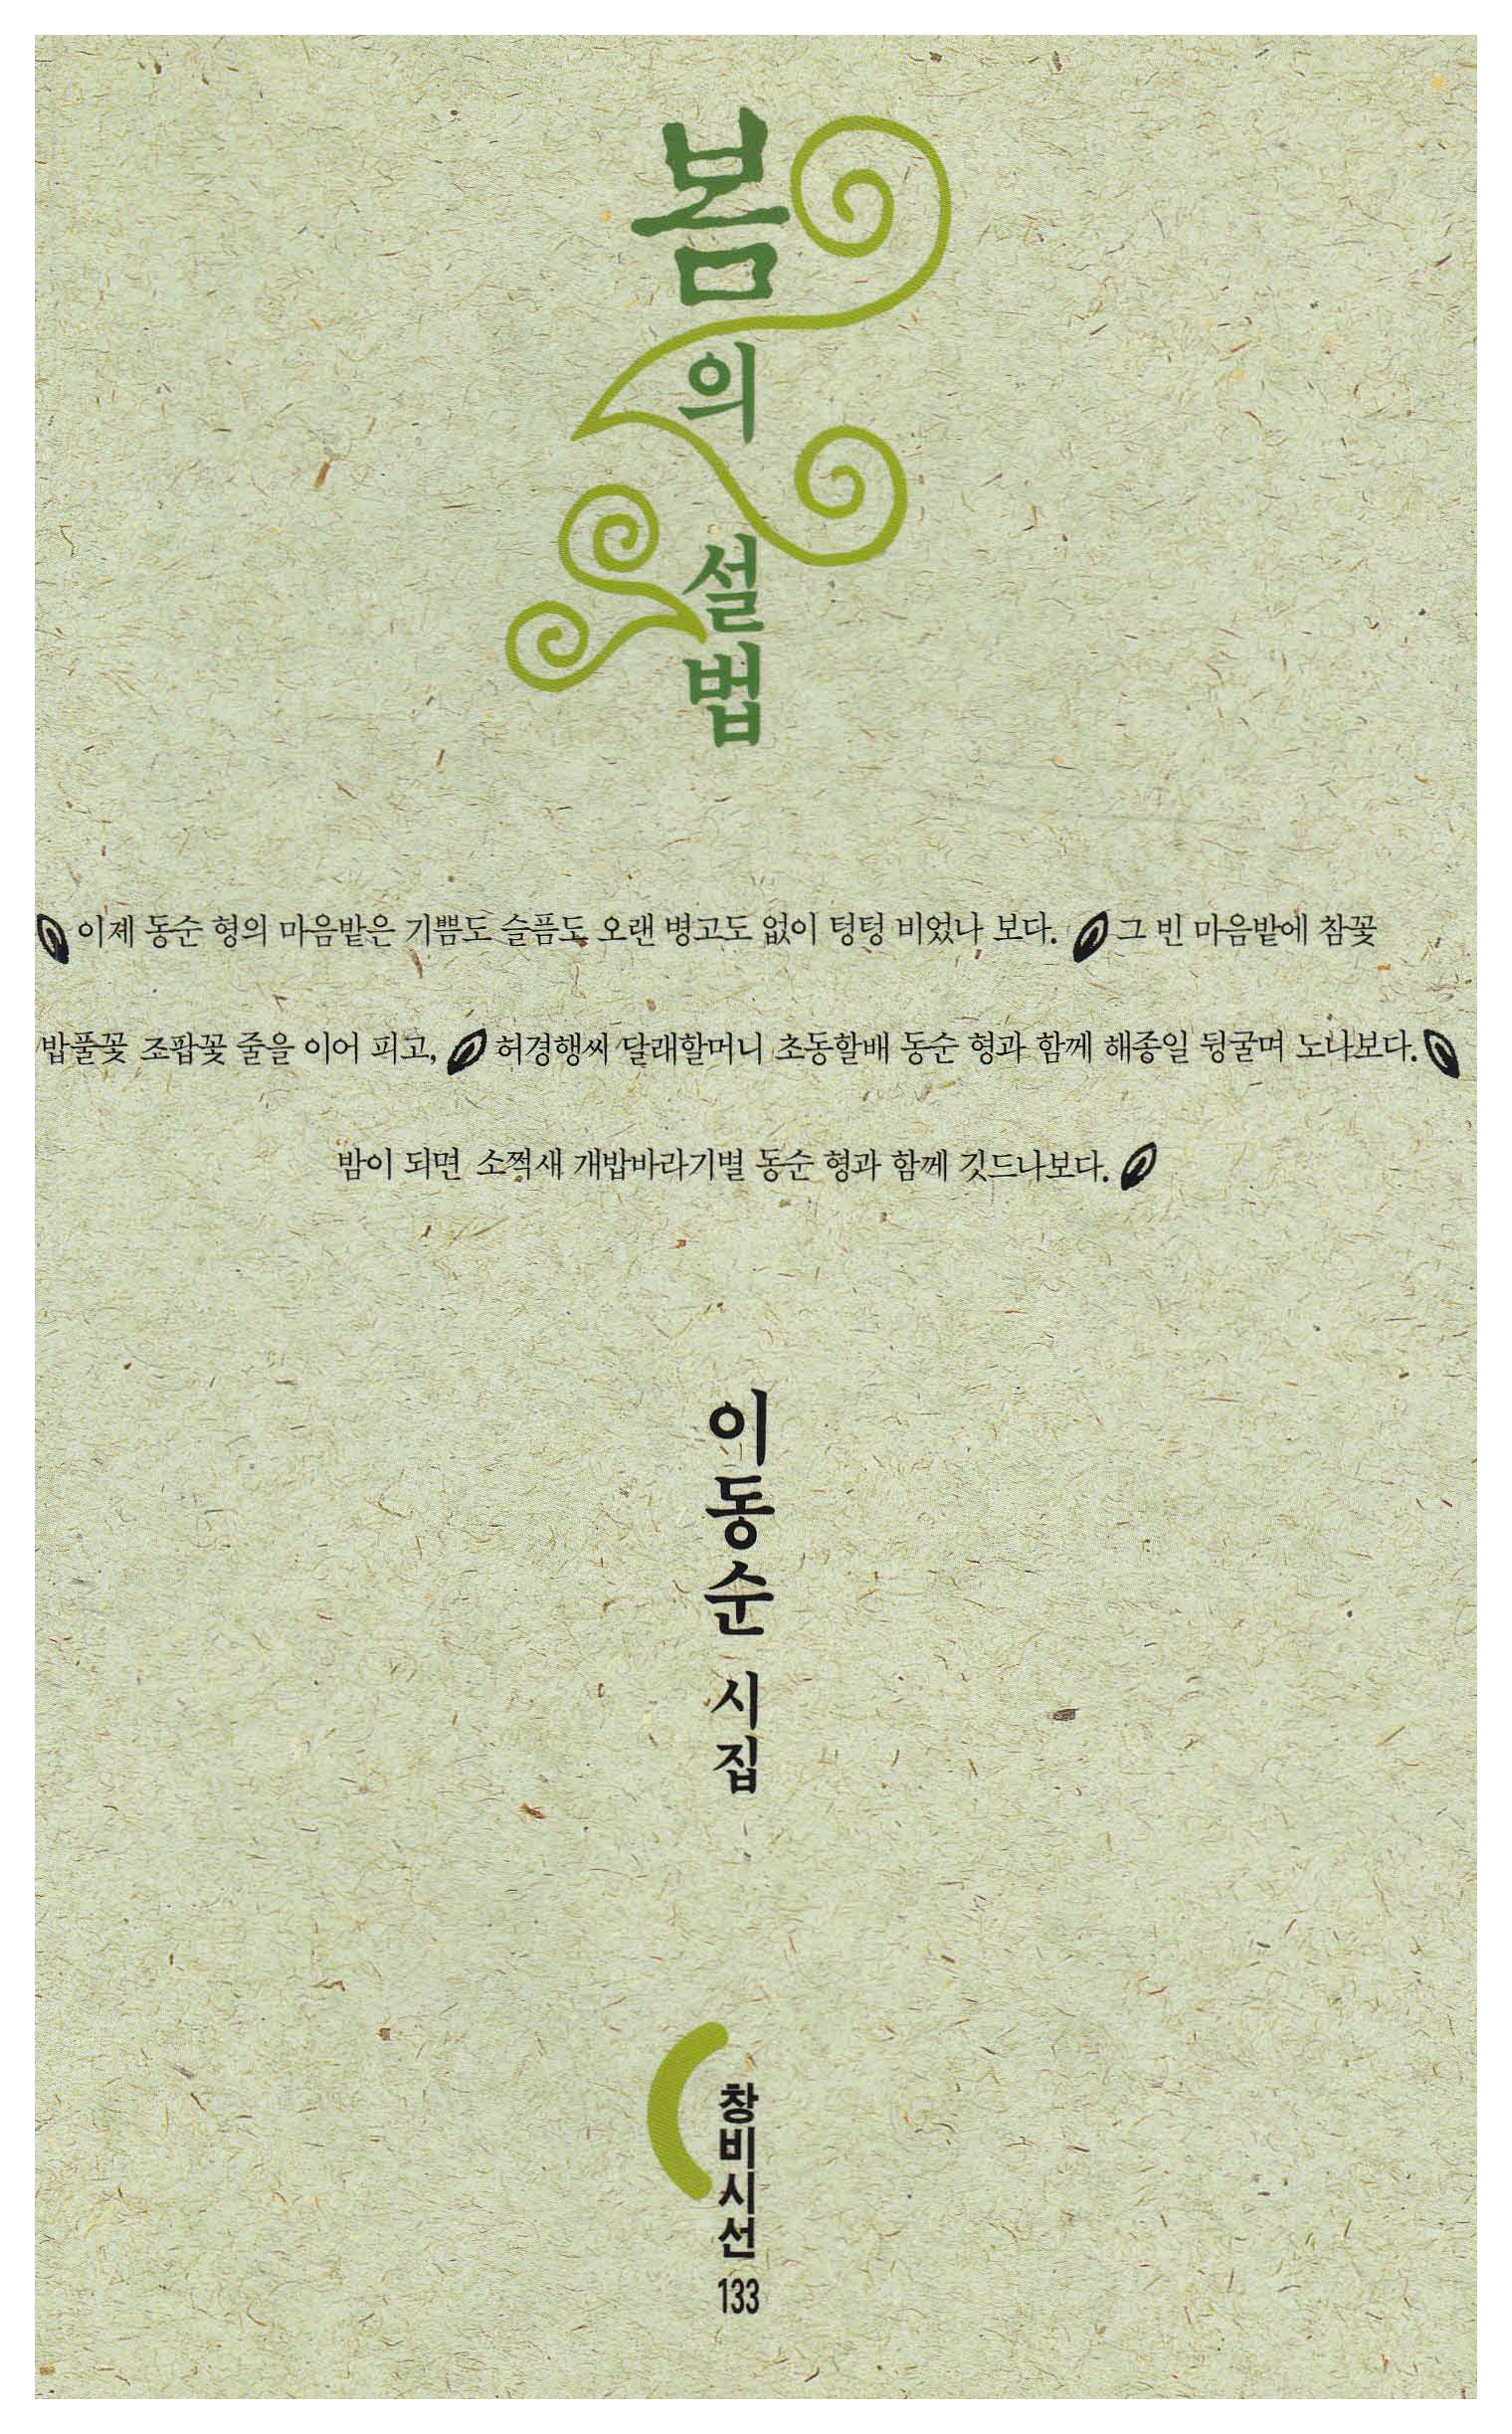 봄의 설법
이제 동순 형의 마음밭은 기쁨도 슬픔도 오랜 병고도 없이 텅텅 비었나 보다. 그 빈 마음밭에 참꽃
밥풀꽃 조팝꽃 줄을 이어 피고, 허경행씨 달래할머니 초동할배 동순 형과 함께 해종일 뒹굴며 노나보다.
밤이 되면 소쩍새 개밥바라기별 동순 형과 함께 깃드나보다.
이동순 시집
창비시선
133